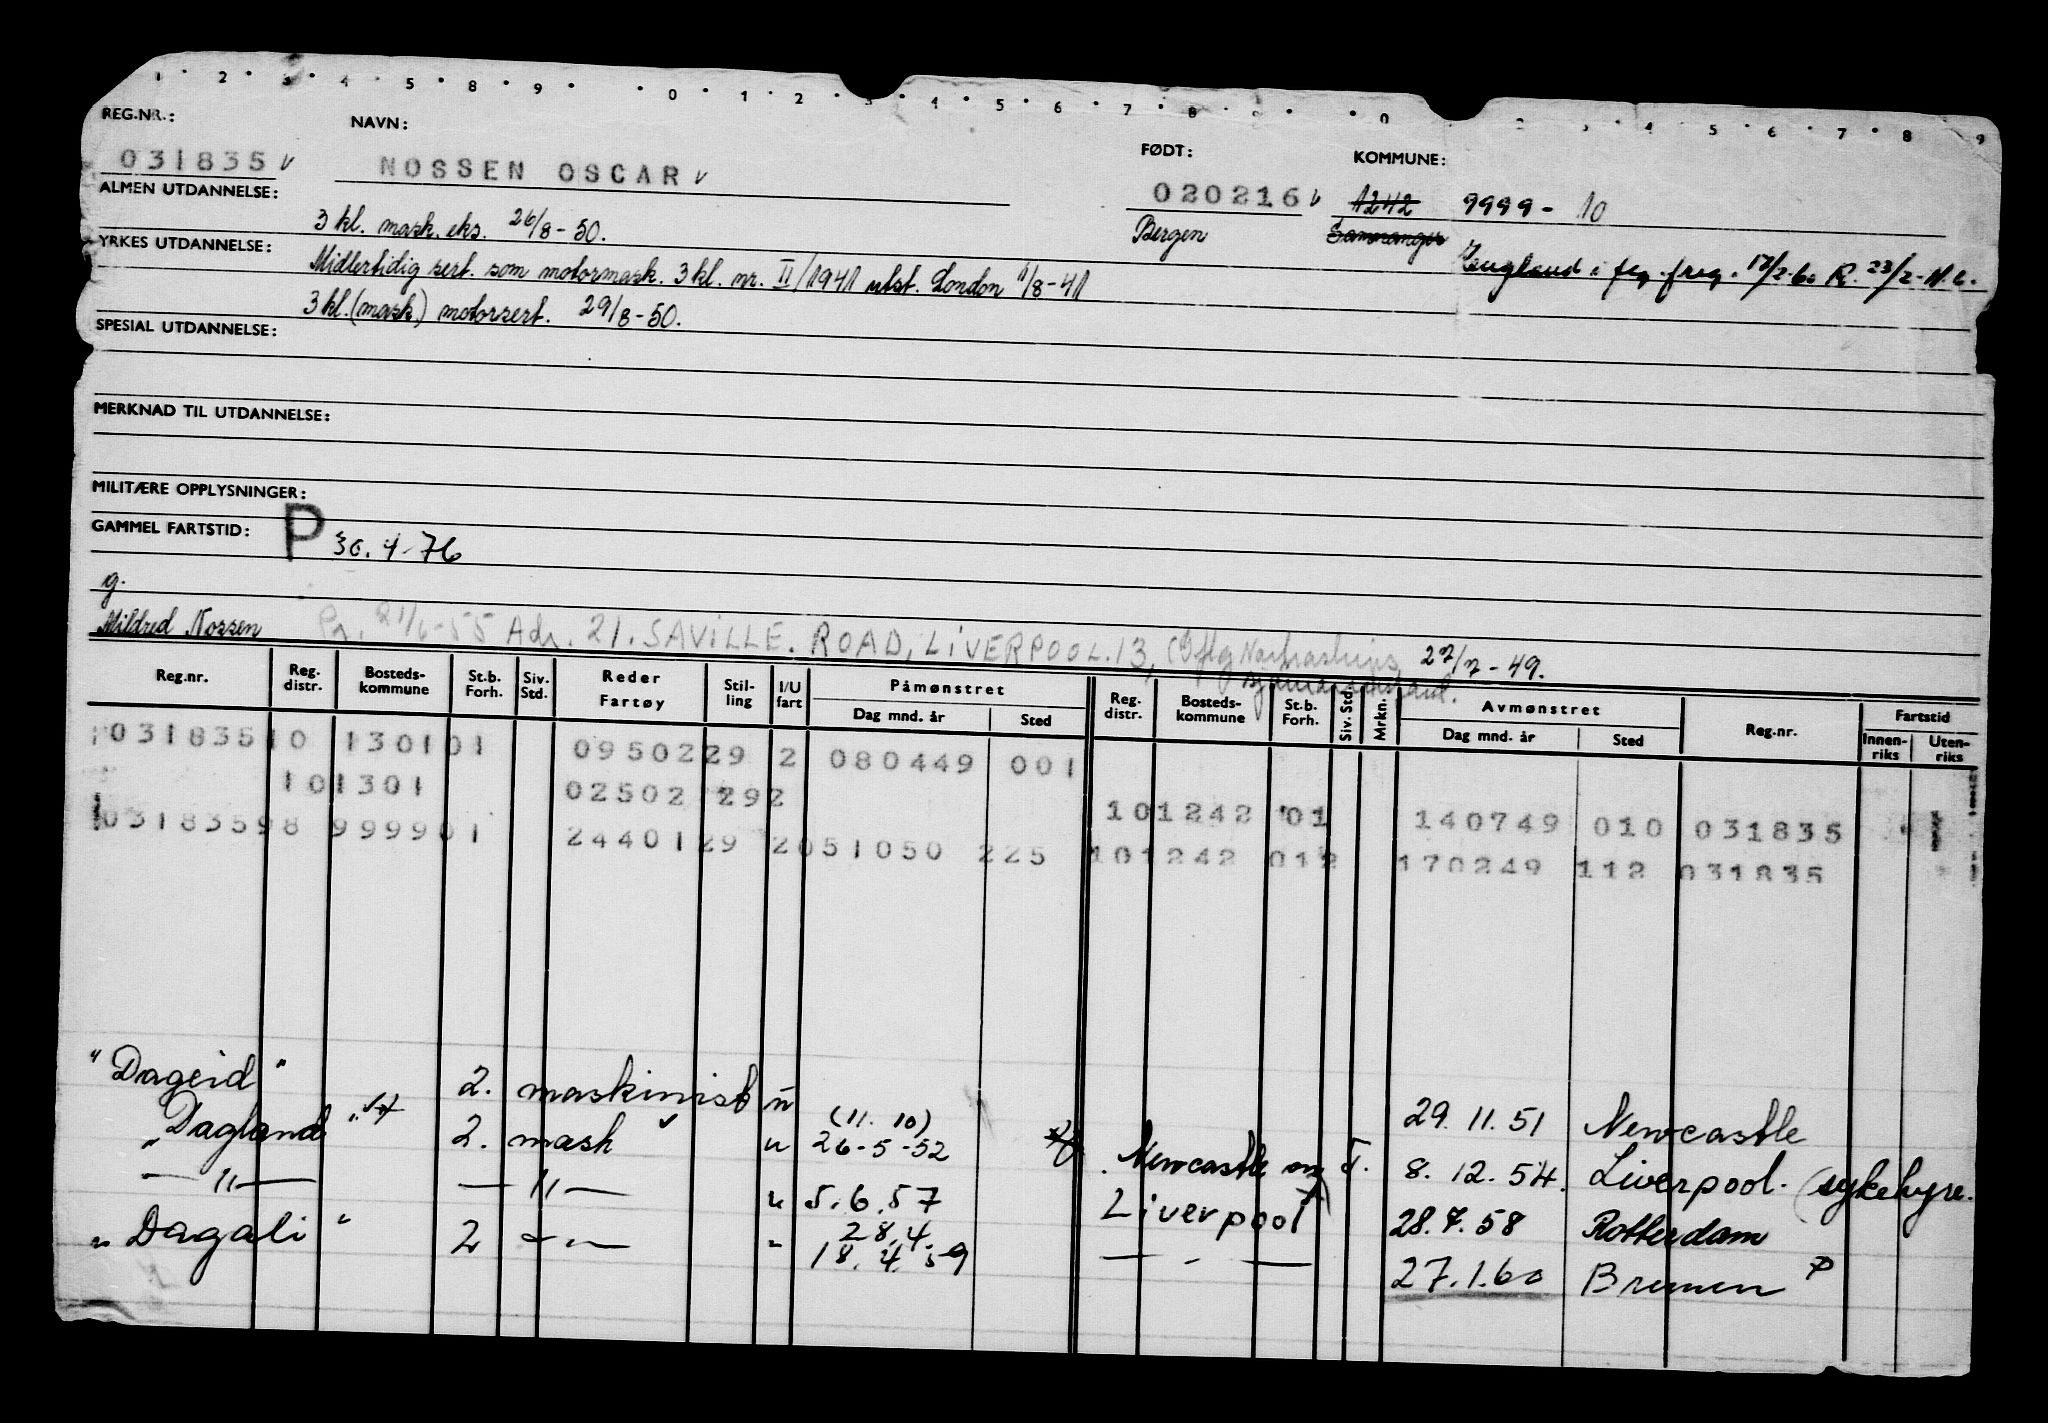 1 2 3 4 5 8 9 0 1 2 3 4 5 6 7 8 9 0 2 3 4 5 6 7 8 9
REG.NR.: NAVN: FØDT: KOMMUNE:
031835 NOSSEN OSCAR 020216 1242 9999 - 10
ALMEN UTDANNELSE: 3 kl. mask. eks. 26/8-50. Bergen Samnanger
England i flg. freg. 17/2-60 R. 23/2-
YRKES UTDANNELSE: Midlertidig sert. som motormask. 3 kl. nr. II/1941 utst. London 1/8-41
3 kl. (mask.) motorsert. 29/8-50.
SPESIAL UTDANNELSE:
MERKNAD TIL UTDANNELSE:
MILITÆRE OPPLYSNINGER:
GAMMEL FARTSTID: P 30.4-76
g.
Mildred Nossen 21/6-55 Adr. 21. SAVILLE. ROAD, LIVERPOOL.13, 27/7-49.
Reg.nr. Reg. distr. Bosteds-kommune St.b. Forh. Siv. Std. Reder Fartøy Stil-ling I/U fart Påmønstret Dag mnd. år Sted Reg. distr. Bosteds-kommune St.b. Forh. Siv. Std. Mrkn. Avmønstret Dag mnd. år Sted Reg.nr. Fartstid Innen-riks Uten-riks
031835 10 1301 01 0950229 2 080449 001
101301 02502 292 101242 01 140749 010 031835
031835 98 9999 01 2440129 2 051050 225 101242 012 170249 112 031835
"Dageid" 2. maskinist u (11. 10) 29. 11. 51 Newcastle
"Dagland" 2. mask u 26-5-52 Newcastle on T. 8. 12. 54. Liverpool. (sykehyre.
— " — — " — u 5. 6. 57 Liverpool 28. 7. 58 Rotterdam
28. 4.
"Dagali" 2 — " — " 18. 4. 59 — " — 27. 1. 60 Bremen P